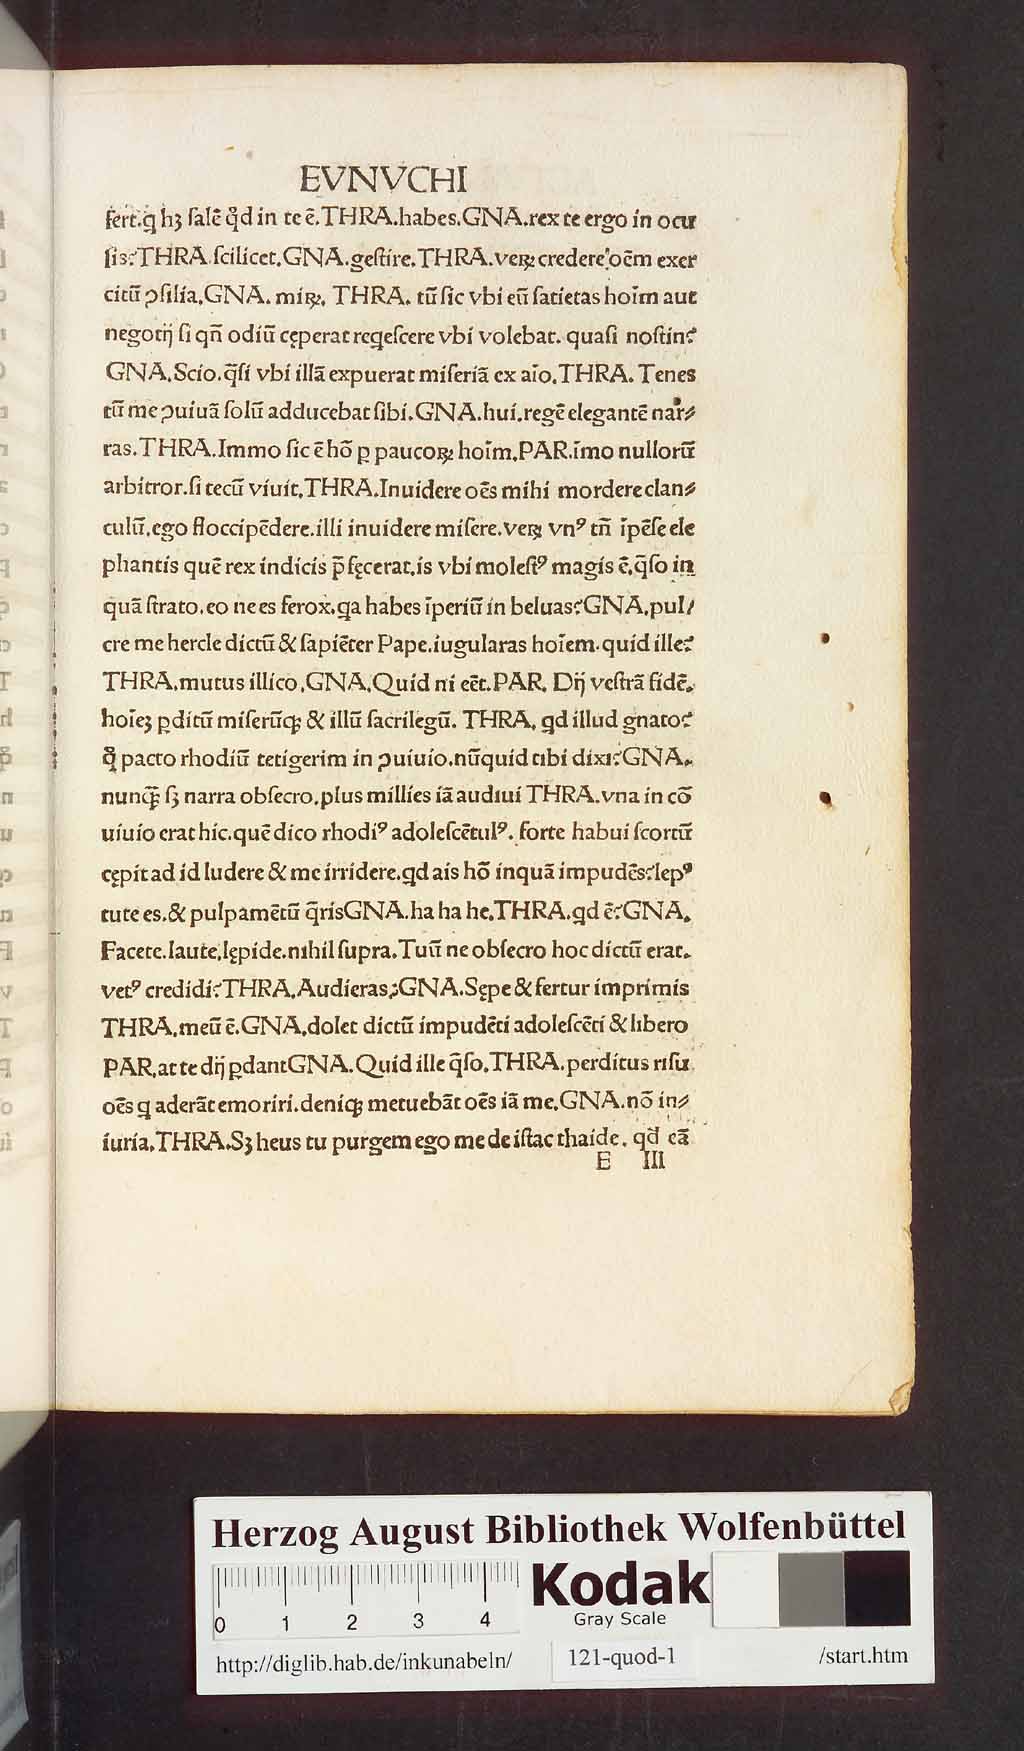 EVNVCHI
fert.ꝗ hꝫ ſalē qͦd in te ē.THRA.habes.GNA.rex te ergo in ocu
lis?THRA.ſcilicet.GNA.geſtire.THRA.veꝝ credere!oēm exer
citū ↄſilia.GNA.miꝝ. THRA. tū ſic vbi eū ſatietas hoīm aut
negotij ſi qn̄ odiū cęperat reqeſcere vbi volebat. quaſi noſtin?
GNA.Scio.q̄ſi vbi illā expuerat miſeriā ex aīo.THRA. Tenes
tū me ↄuiuā ſolū adducebat ſibi.GNA.hui.regē elegantē nar⸗
ras.THRA.Immo ſic ē hō ꝑ paucoꝝ hoīm.PAR.īmo nullorū
arbitror.ſi tecū viuit.THRA.Inuidere oēs mihi mordere clan⸗
culū.ego floccipēdere.illi inuidere miſere.veꝝ vnꝰ tn̄ īpēſe ele
phantis quē rex indicis p̄fęcerat.is vbi moleſtꝰ magis ē.q̄ſo in
quā ſtrato.eo ne es ferox.ꝗa habes īperiū in beluas?GNA.pul/
cre me hercle dictū & ſapiēter Pape.iugularas hoīem.quid ille?
THRA.mutus illico.GNA.Quid ni eēt.PAR. Dij veſtrā fidē.
hoīeꝫ ꝑditū miſerūqꝫ & illū ſacrilegū. THRA. ꝗd illud gnato?
qͦ pacto rhodiū tetigerim in ↄuiuio.nūquid tibi dixi?GNA.
nunqꝫ̄ ſꝫ narra obſecro.plus millies iā audiui THRA.vna in cō
uiuio erat hic.quē dico rhodiꝰ adoleſcētulꝰ. forte habui ſcortū
cępit ad id ludere & me irridere.ꝗd ais hō inquā impudēs?lepꝰ
tute es.& pulpamētū q̄risGNA.ha ha he.THRA.ꝗd ē?GNA.
Facete.laute.lępide.nihil ſupra.Tuū ne obſecro hoc dictū erat.
vetꝰ credidi?THRA.Audieras?GNA.Sępe & fertur imprimis
THRA.meū ē.GNA.dolet dictū impudēti adoleſcēti & libero
PAR.at te dij ꝑdantGNA.Quid ille q̄ſo.THRA.perditus riſu
oēs ꝗ aderāt emoriri.deniqꝫ metuebāt oēs iā me.GNA.nō in⸗
iuria.THRA.Sꝫ heus tu purgem ego me de iſtac thaide. ꝗd eā
E III
Herzog August Bibliothek Wolfenbüttel
0 1 2 3 4
Kodak
Gray Scale
http://diglib.hab.de/inkunabeln/ 121-quod-1 /start.htm